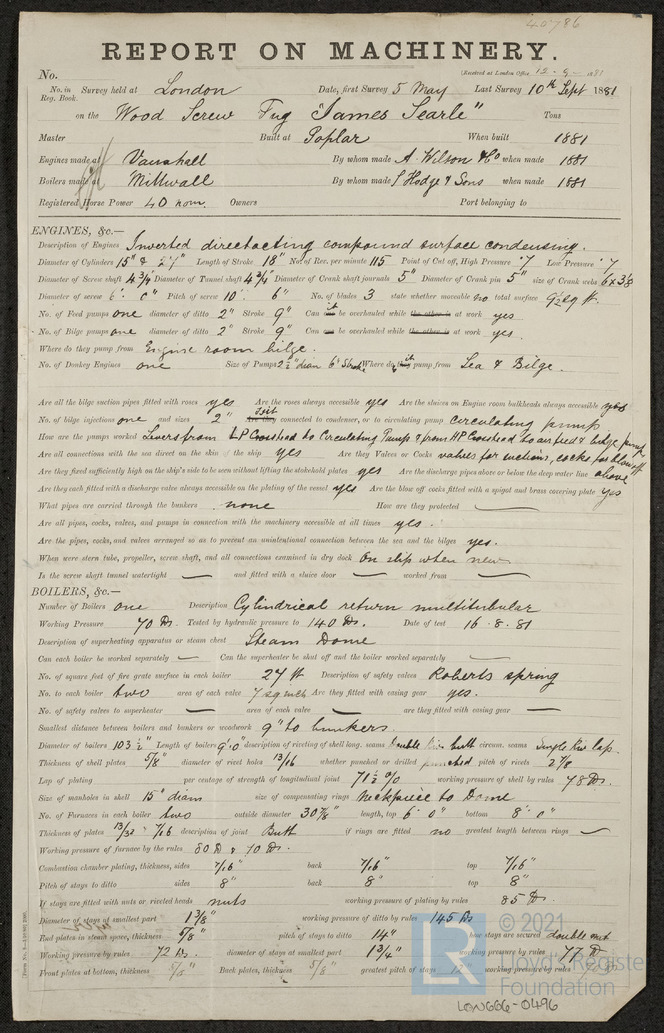 40786
REPORT ON MACHINERY.
No. (Received at London Office 12-9-1881
No. in Reg. Book. Survey held at London Date, first Survey 5 May Last Survey 10th Sept 1881
on the Wood Screw Tug "James Searle" Tons
Master Built at Poplar When built 1881
Engines made at Vauxhall By whom made A. Wilson & Co when made 1881
Boilers made at Millwall By whom made P Hodge & Sons when made 1881
Registered Horse Power 40 nom. Owners Port belonging to
ENGINES, &c.—
Description of Engines Inverted directacting compound surface condensing.
Diameter of Cylinders 15" & 27" Length of Stroke 18" No. of Rev. per minute 115 Point of Cut off, High Pressure .7 Low Pressure .7
Diameter of Screw shaft 4 3/4 Diameter of Tunnel shaft 4 3/4" Diameter of Crank shaft journals 5" Diameter of Crank pin 5" size of Crank webs 6 x 3 1/8
Diameter of screw 6' 0" Pitch of screw 10' 6" No. of blades 3 state whether moveable no total surface 9 1/2 sq ft.
No. of Feed pumps one diameter of ditto 2" Stroke 9" Can it be overhauled while the other is at work yes
No. of Bilge pumps one diameter of ditto 2" Stroke 9" Can it be overhauled while the other is at work yes.
Where do they pump from Engine room bilge.
No. of Donkey Engines one Size of Pumps 2 1/2" diam 6" Stroke Where do they it pump from Sea & Bilge.
Are all the bilge suction pipes fitted with roses yes Are the roses always accessible yes Are the sluices on Engine room bulkheads always accessible yes
No. of bilge injections one and sizes 2" Are they Is it connected to condenser, or to circulating pump circulating pump
How are the pumps worked Levers from LP Crosshead to Circulating Pump & from HP Crosshead to air feed & bilge pumps
Are all connections with the sea direct on the skin of the ship yes Are they Valves or Cocks valves for suctions, cocks for blow off
Are they fixed sufficiently high on the ship's side to be seen without lifting the stokehold plates yes Are the discharge pipes above or below the deep water line above
Are they each fitted with a discharge valve always accessible on the plating of the vessel yes Are the blow off cocks fitted with a spigot and brass covering plate yes
What pipes are carried through the bunkers none How are they protected —
Are all pipes, cocks, valves, and pumps in connection with the machinery accessible at all times yes.
Are the pipes, cocks, and valves arranged so as to prevent an unintentional connection between the sea and the bilges yes.
When were stern tube, propeller, screw shaft, and all connections examined in dry dock On slip when new
Is the screw shaft tunnel watertight — and fitted with a sluice door — worked from —
BOILERS, &c.—
Number of Boilers one Description Cylindrical return multitubular
Working Pressure 70 lbs. Tested by hydraulic pressure to 140 lbs. Date of test 16.8.81
Description of superheating apparatus or steam chest Steam Dome
Can each boiler be worked separately — Can the superheater be shut off and the boiler worked separately —
No. of square feet of fire grate surface in each boiler 27 ft Description of safety valves Roberts spring
No. to each boiler two area of each valve 7 sq inch Are they fitted with easing gear yes.
No. of safety valves to superheater — area of each valve — are they fitted with easing gear —
Smallest distance between boilers and bunkers or woodwork 9" to bunkers.
Diameter of boilers 103 1/2" Length of boilers 9'.0" description of riveting of shell long. seams double Riv butt circum. seams Single Riv lap.
Thickness of shell plates 5/8" diameter of rivet holes 13/16 whether punched or drilled punched pitch of rivets 2 7/8
Lap of plating per centage of strength of longitudinal joint 71 1/2 % working pressure of shell by rules 78 lbs.
Size of manholes in shell 15" diam size of compensating rings neckpiece to Dome
No. of Furnaces in each boiler two outside diameter 30 7/8" length, top 6'. 0" bottom 8'. 0"
Thickness of plates 13/32 & 7/16 description of joint Butt if rings are fitted no greatest length between rings —
Working pressure of furnace by the rules 80 lbs & 70 lbs.
Combustion chamber plating, thickness, sides 7/16" back 7/16" top 7/16"
Pitch of stays to ditto sides 8" back 8" top 8"
If stays are fitted with nuts or riveted heads nuts working pressure of plating by rules 85 lbs.
Diameter of stays at smallest part 1 3/8" working pressure of ditto by rules 145 lbs
End plates in steam space, thickness 5/8" pitch of stays to ditto 14" how stays are secured double nut
Working pressure by rules 72 lbs. diameter of stays at smallest part 1 3/4" working pressure by rules 77 lbs
Front plates at bottom, thickness 5/8" Back plates, thickness 5/8" greatest pitch of stays 12 working pressure by rules
© 2021
LR Lloyd's Register
Foundation
LON666-0496